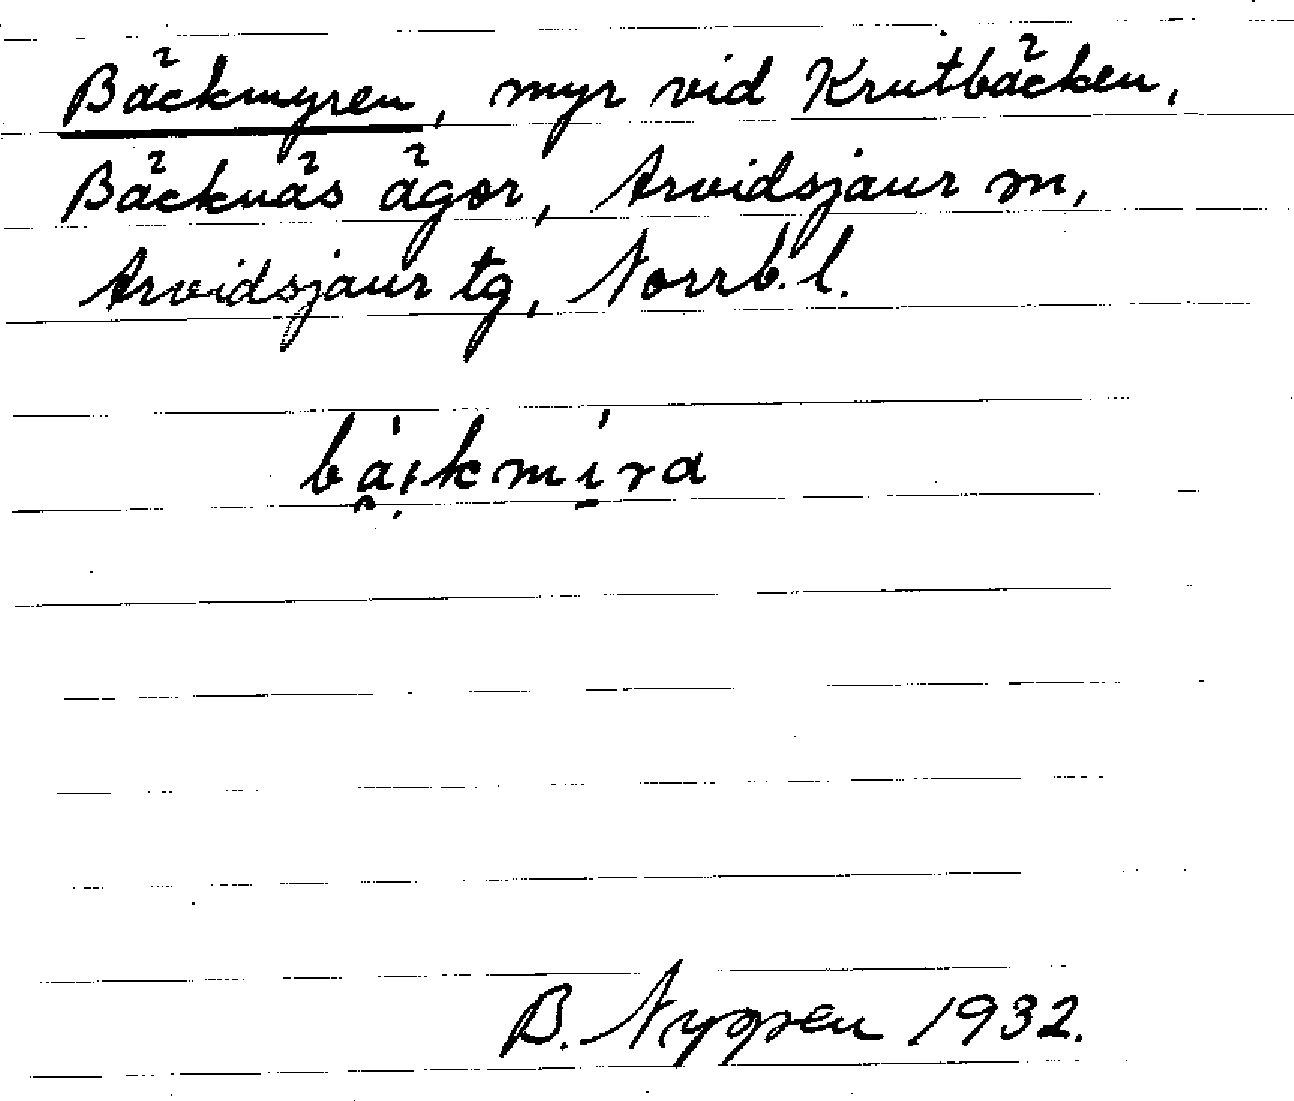 Bäckmyren, myr vid Krutbäcken,
Bäcknäs ägor, Arvidsjaur sn,
Arvidsjaur tg, Norrb. l.
B. Nygren 1932.